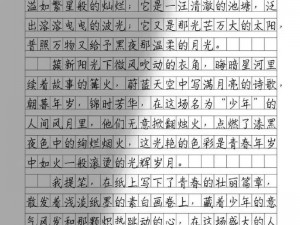 溢如繁星般的灿烂；它是一汪清澈的池塘，泛
出溶溶曳曳的波光；它又是那光芒万大的太阳，
普照万物又给予黑夜那温柔的月光。
簇新阳光下微风吹动的衣角，晦暗星河里
续着故事的篝火，蔚蓝天空中写满月亮的诗歌。
朝暮年岁，锦时芳华，在这场名为“少年”的
人间风月里。他们无意掀翻烛火，点燃了漆黑
夜色中的绚烂烟火，这光艳的色彩是青春年岁
中如火一般滚更的光辉岁月。
我提笔，在纸上写下了青春的壮丽篇章，
散发着浅淡纸墨的素白画卷上，藏着少年的意
气风发和那颗炽热跳动的心，在这场盛大的人